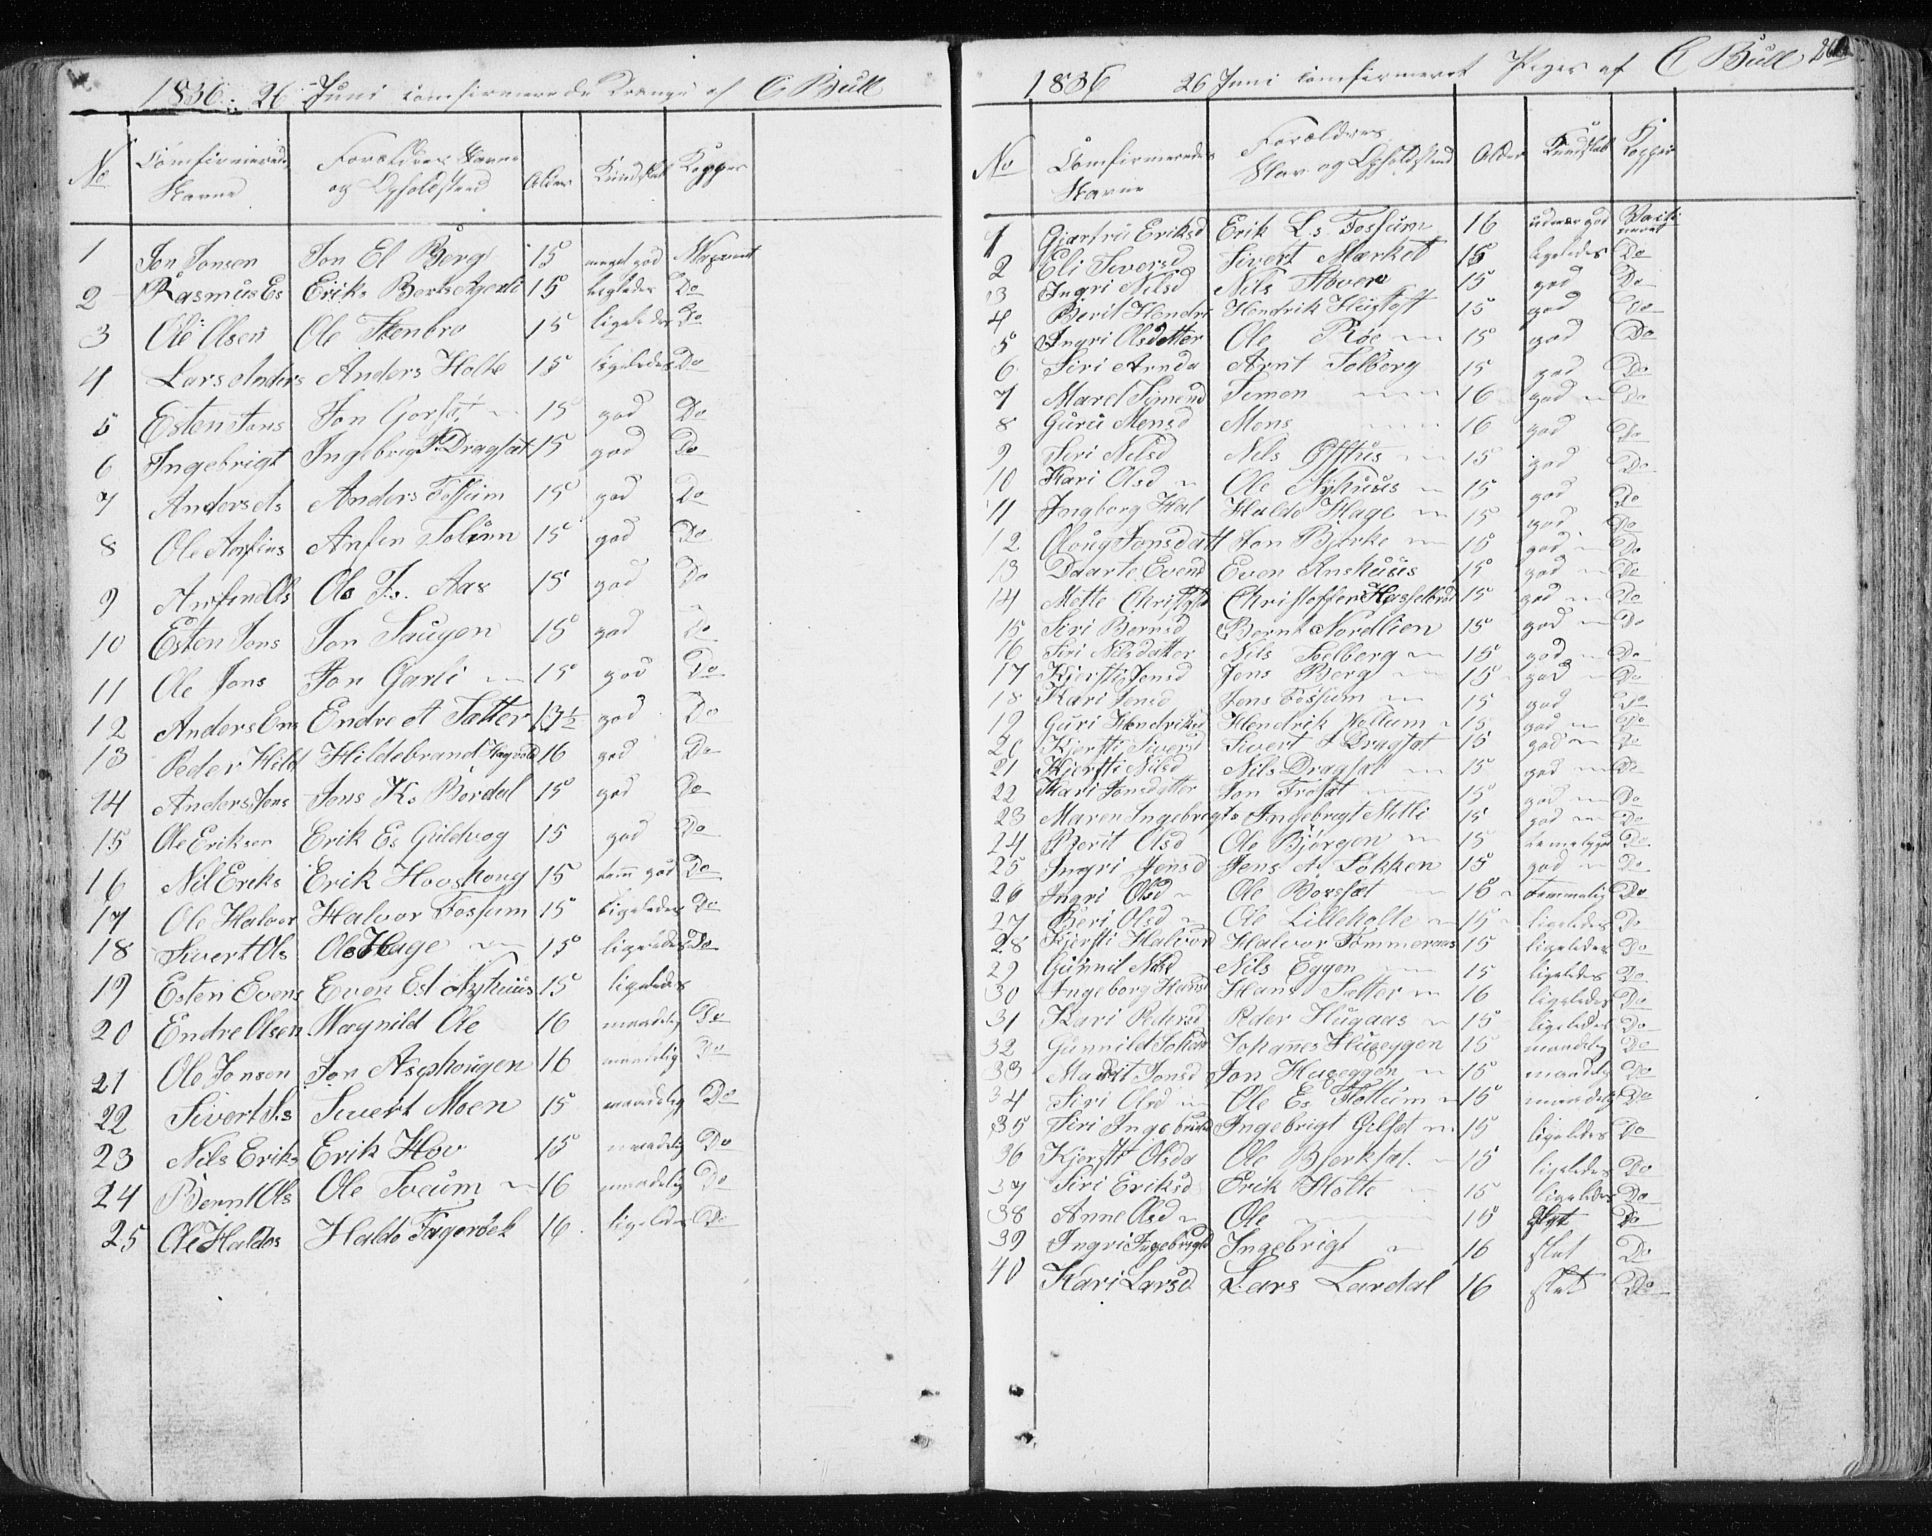 1836. 26 Juni comfirmerede Drenge af C Bull
No Comfirmerede Navne Forældres Navne og Opholdsted Alder Kundskab Kopper
1 Jon Jonsen Jon El Berg 15 meget god Vaxineret
2 Rasmus Es Eriks 15 ligeledes Do
3 Ole Olsen Ole Stenbro 15 ligeledes Do
4 Lars Anders Anders Holte 15 ligeledes Do
5 Esten Jons Jon Gorsæt 15 god Do
6 Ingebrigt Ingebrigt Dragsæt 15 god Do
7 Anders As Anders Fossum 15 god Do
8 Ole Anfins Anfin Solem 15 god Do
9 Anfin Ols Ole Js. Aas 15 god Do
10 Esten Jons Jon Haugen 15 god Do
11 Ole Jons Jon Garli 15 god Do
12 Anders Ens Endre A Sætter 13½ god Do
13 Peder Hild Hildebrand 16 god Do
14 Anders Jens Jens Ks Bordal 15 god Do
15 Ole Eriksen Erik Es Guldvog 15 god Do
16 Nil Eriks Erik Hovshaug 15 tem god Do
17 Ole Halvor Halvor Fossum 15 ligeledes Do
18 Sivert Ols Ole Hage 15 ligeledes Do
19 Esten Evens Even Est Nyhuus 15 ligeledes
20 Endre Olsen Wagnild Ole 16 maadelig Do
21 Ole Jonsen Jon Asphougen 16 maadelig Do
22 Sivert Ss Sivert Moen 15 maadelig Do
23 Nils Eriks Erik Hov 15 maadelig Do
24 Bernt Ols Ole Sveum 16 maadelig Do
25 Ole Haldos Haldo Fagerbek 16 ligeledes Do
1836 26 Juni comfirmeret Piger af C Bull
No Comfirmeredes Navne Forældres Nav og Opholdsted Alder Kundskab Kopper
1 Gjertru Eriksd Erik Ls Fossum 16 udmær god Vaxineret
2 Eli Siversd Sivert Mærket 15 ligeledes Do
3 Ingri Nilsd Nils Hoven 15 god Do
4 Berit Hendri Hendrik 15 god Do
5 Ingri Olsdatter Ole Røe 15 god Do
6 Siri Arnda Arnt Solberg 15 god Do
7 Maret Simend Simon 16 god Do
8 Guru Monsd Mons 16 god Do
9 Siri Nilsd Nils Offhus 15 god Do
10 Kari Olsd Ole Nyhuus 15 god Do
11 Ingborg Hal Haldo Hage 15 god Do
12 Oloug Jonsdatt Jon Bjerke 15 god Do
13 Daarte Evend Even Anshuus 15 god Do
14 Mette Christofd Christoffer Hasselbrot 15 god Do
15 Siri Berntsd Bernt Nordlien 15 god Do
16 Siri Nilsdatter Nils Solberg 15 god Do
17 Kjersti Jensd Jens Berg 15 god Do
18 Kari Jensd Jens Fossum 15 god Do
19 Guri Hendriksd Hendrik Vollum 15 god Do
20 Kjersti Siversd Sivert Dragsæt 15 god Do
21 Kjersti Nilsd Nils Dragsæt 15 god Do
22 Kari Jonsdatter Jon Frosæt 15 god Do
23 Maren Ingebrigts Ingebregt Melli 15 god Do
24 Berit Olsd Ole Bjørgen 15 Do
25 Ingri Jensd Jens A Løkken 15 god Do
26 Ingri Olsd Ole Borsæt 15 temmelig Do
27 Beri Olsd Ole Lilleholte 15 ligeledes Do
28 Kjersti Halvord Halvor Tømmeraas 15 ligeledes Do
29 Gunnil Nilsd Nils Eggen 15 ligeledes Do
30 Ingeborg Hansd Hans Sætter 16 ligeledes Do
31 Kari Pedersd Peder Hugaas 15 ligeledes Do
32 Gunnild Johand Johanes Hugeggen 15 maadelig Do
33 Marit Jonsd Jon Hugeggen 15 maadelig Do
34 Siri Olsd Ole Es Hollum 15 maadelig Do
35 Siri Ingebrid Ingebrigt Gilset 15 ligeledes Do
36 Kjersti Olsda Ole Bjerksæt 15 ligeledes Do
37 Siri Eriksd Erik Holte 15 ligeledes Do
38 Anne Olsd Ole 15 slet Do
39 Ingri Ingebrigtd Ingebrigt 16 slet Do
40 Kari Larsd Lars Lardal 16 slet Do